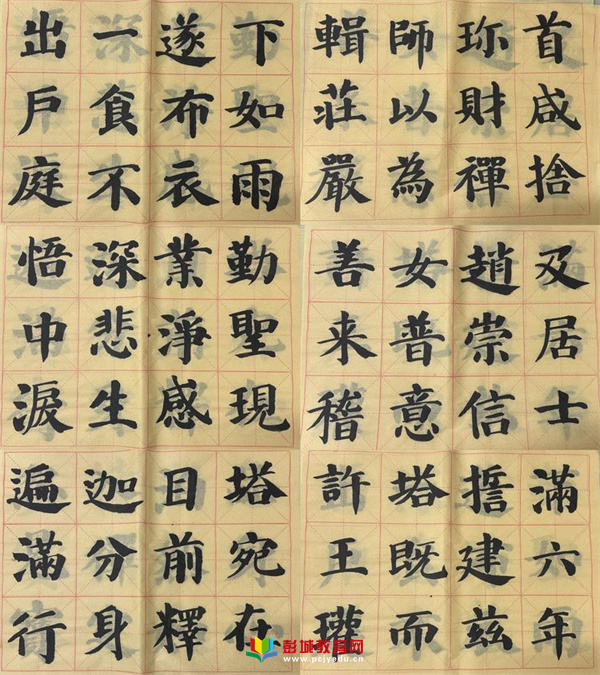 塔宛在
目前釋
迦分身
遍滿行
勤聖現
業淨感
深悲生
悟中淚
下如雨
遂布衣
一食不
出戶庭
滿六年
誓建茲
塔既而
許王瓘
及居士
趙崇信
女普意
善来稽
首咸捨
珎財禪
師以為
輯莊嚴
彭城教育网
www.pcjyedu.cn